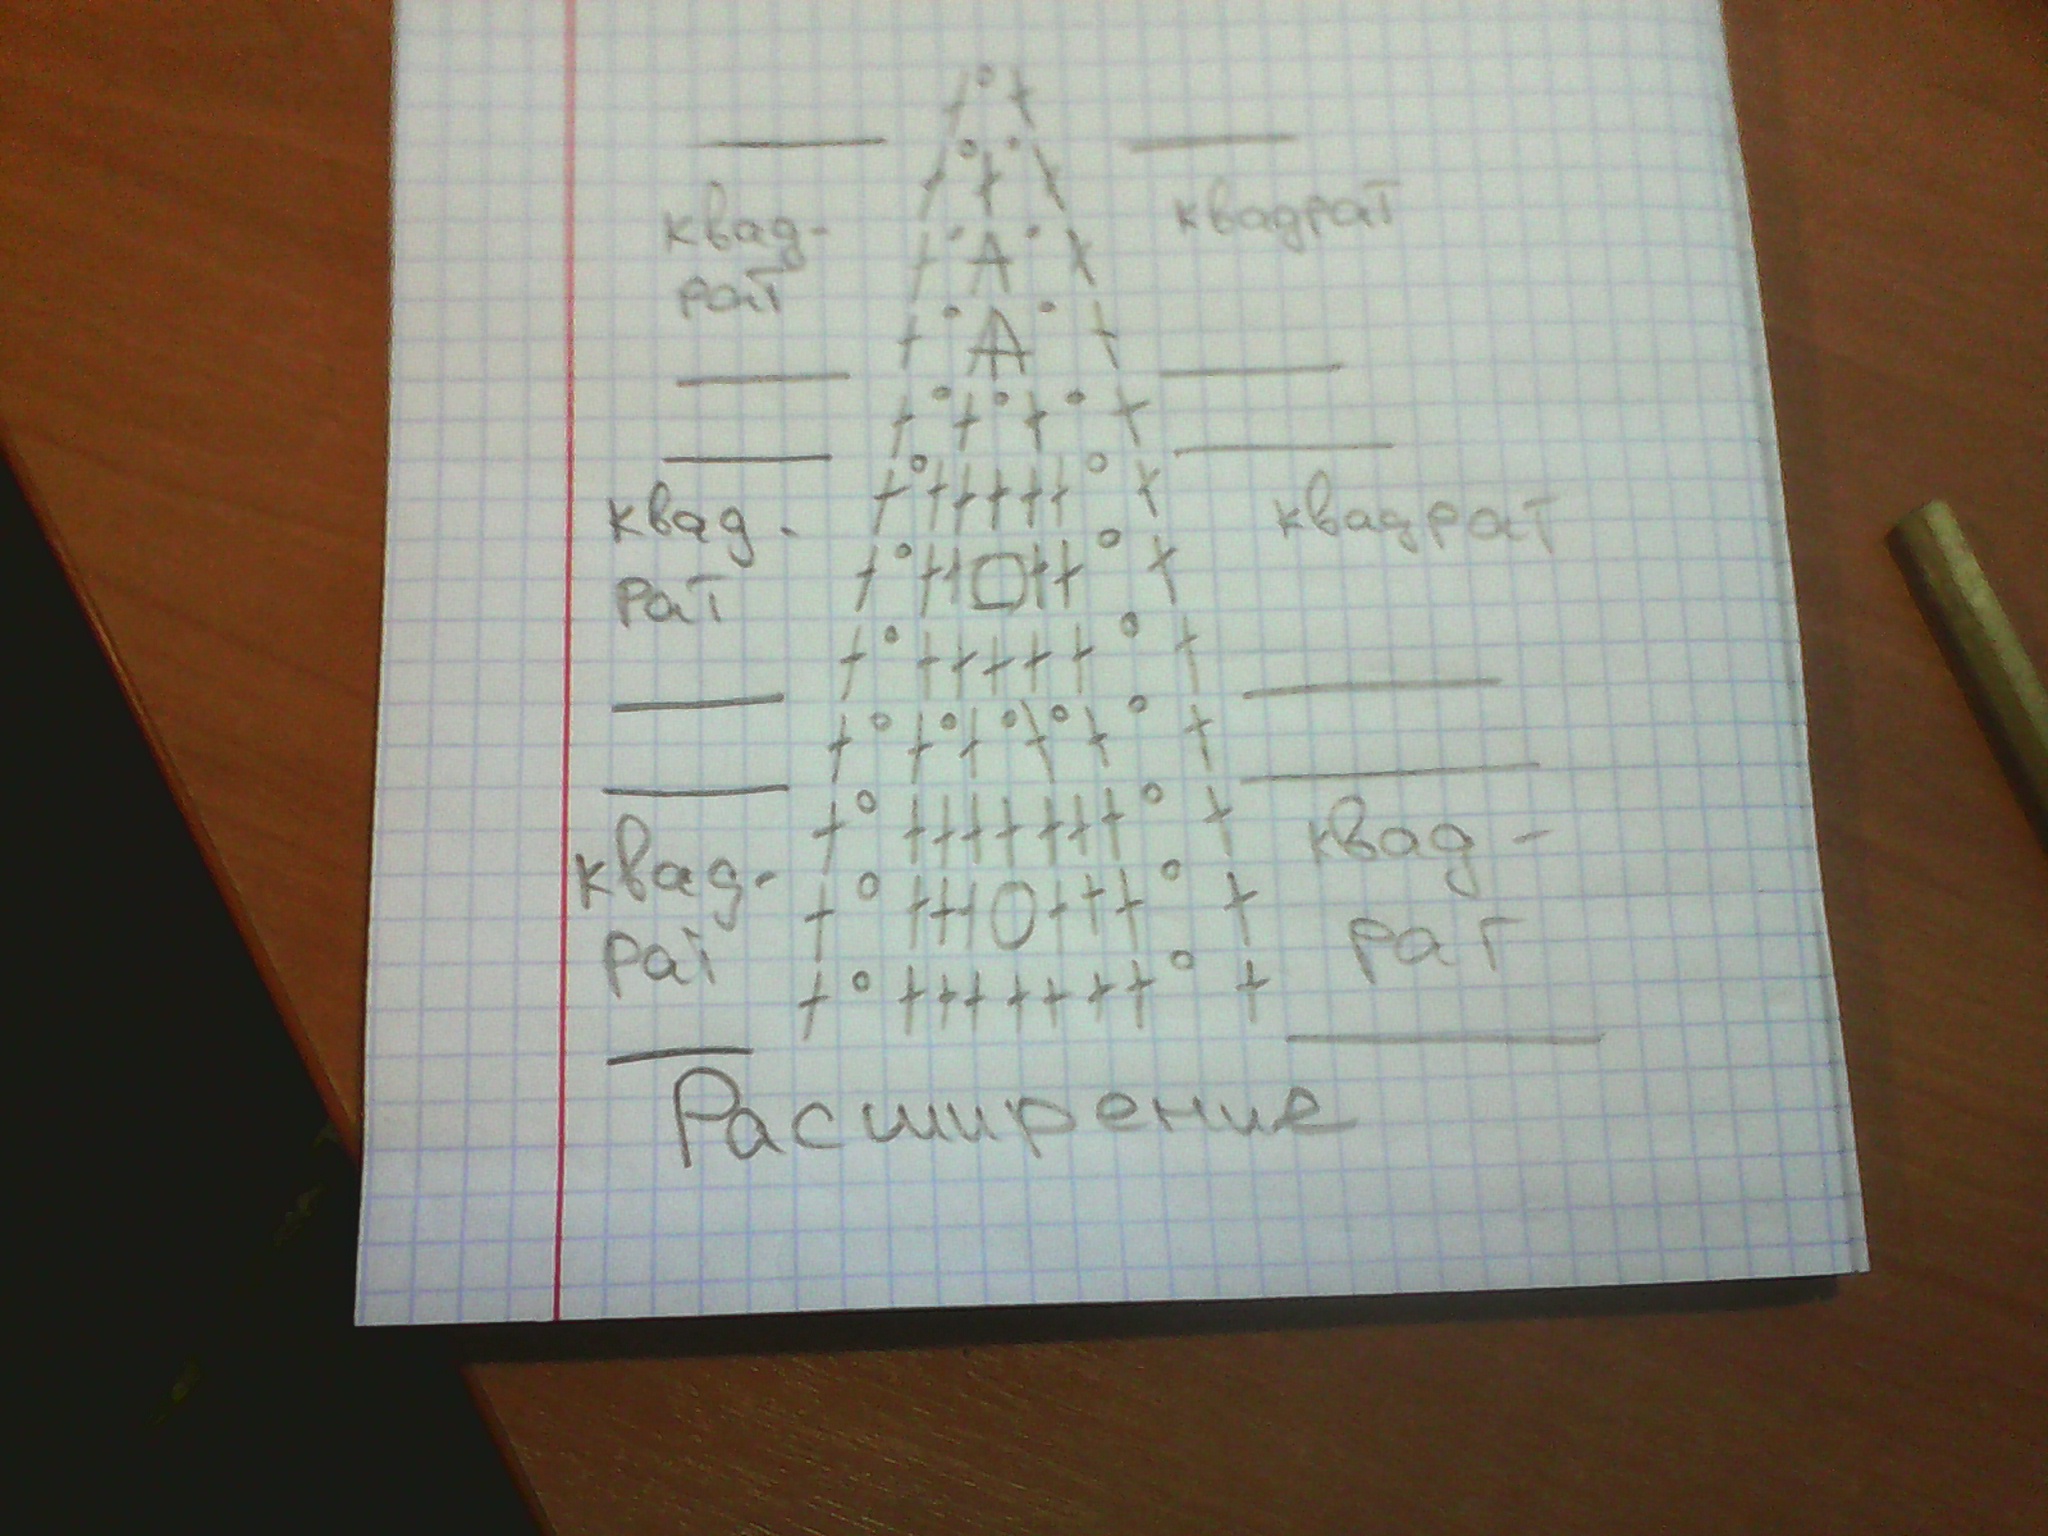 квад- квадрат
рат
квад- квадрат
рат
квад- квад-
рат рат
Расширение